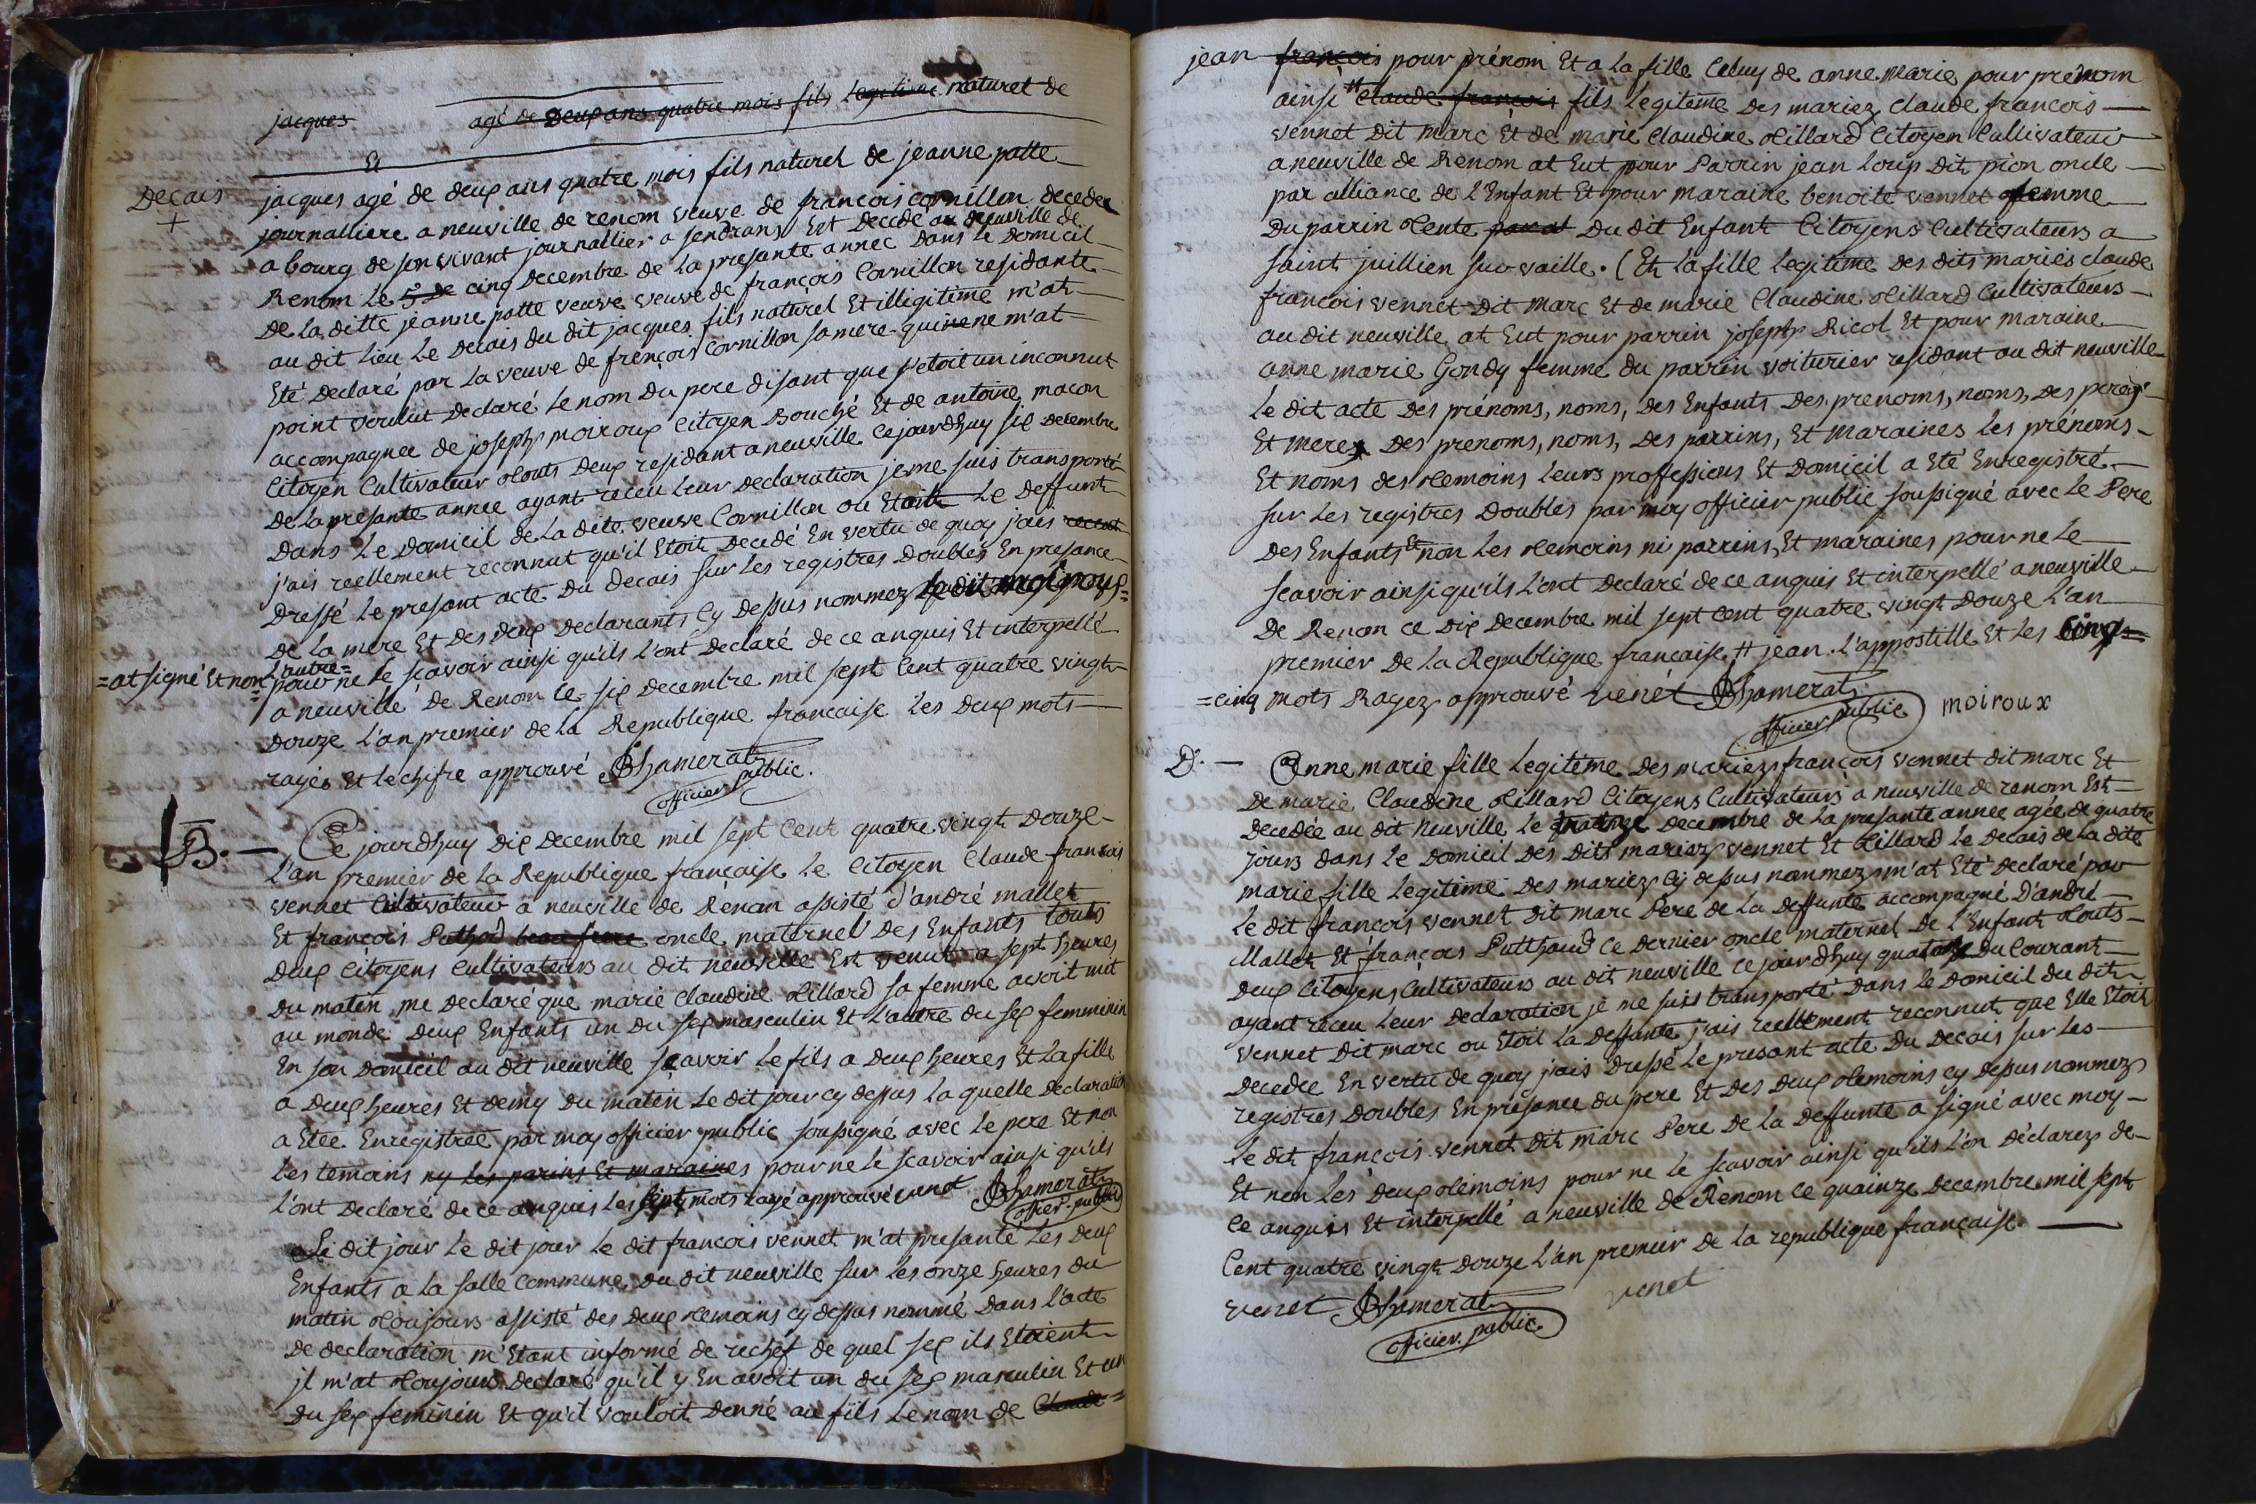 jacques agé de deux ans quatre mois fils legitime naturel de
Et
Decais
+
jacques agé de deux ans quatre mois fils naturel de jeanne patte
journalliere a neuville de renom veuve de francois cornillon decedee
a bourg de son vivant journallier a sendrans Est decedé au neuville de
Renom Le 5 de cinq decembre de la presante annee dans le Domicil
De la ditte jeanne patte veuve veuve de françois Cornillon residante
au dit Lieu Le decais du dit jacques fils naturel Et illigitime m'at
Eté declaré par La veuve de frençois Cornillon sa mere qui ne m'at
point voulut declaré Le nom du pere disant que s'etoit un inconnut
accompagnee de joseph moiroux Citoyen Bouché Et de antoine macon
Citoyen Cultivateur touts deux residant a neuville Cejourdhuy six decembre
de la presante annee ayant receu leur declaration je me suis transporté
Dans Le Domicil de la dite veuve Cornillon ou Etoit Le deffunt
j'ais reellement reconnut qu'il Etoit decedé En vertu de quoy j'ais
Dressé Le presant acte du decais sur Les registres doubles En presance
de la mere Et des deux declarants Cy dessus nommez Le dit moiroux=
=at signé Et non L'autre=
pour ne le scavoir ainsi qu'ils L'ont declaré de ce anquis Et interpellé
a neuville de Renom ce six decembre mil sept Cent quatre vingt
Douze L'an premier de la Republique francaise Les deux mots
rayés Et le chifre approuvé Chamerat
officier public.
B. — Ce jourdhuy dix decembre mil sept Cent quatre vingt Douze
L'an premier de la Republique française Le Citoyen Claude francois
vennet Cultivateur a neuville de Renom assisté d'andré mallet
Et francois Puthod beau frere oncle maternel des Enfants touts
deux Citoyens Cultivateurs au dit neuville Est venut a sept heures
du matin me declaré que marie Claudine tillard sa femme avoit mit
au monde deux Enfants un du sex masculin Et L'autre du sex femminin
En son domicil au dit neuville scavoir Le fils a deux heures Et la fille
a deux heures Et demy du matin Le dit jour cy dessus La quelle declaration
a Etée Enregistrée par moy officier public soussigné avec Le pere Et non
Les temoins ny Les parins Et maraines pour ne Le scavoir ainsi qu'ils
L'ont declaré de ce anquis Les sept mots rayé approuvé venet Chamerat
officier public
Le dit jour Le dit jour Le dit francois vennet m'at presanté Les deux
Enfants a la salle Commune du dit neuville sur Les onze heures du
matin toujours assisté des deux temoins cy dessus nommé Dans L'acte
De declaration m'Etant informé de rechef de quel sex ils Etoient
jl m'at toujours declaré qu'il y En avoit un du sex masculin Et un
du sex feminin Et qu'il vouloit donné au fils Le nom de Claude=
jean francois pour prénom Et a la fille Celuy de anne marie pour prénom
ainsi # Claude francois fils Legiteme des mariez Claude francois
vennet Dit marc Et de marie Claudine tillard Citoyen Cultivateur
a neuville de Renom at Eut pour Parrin jean Loup dit pion oncle
par alliance de L'Enfant Et pour maraine benoite vennet femme
du parrin tente par at du dit Enfant Citoyens Cultivateurs a
saint juillien sur vaille. (Et La fille Legitime des dits mariés claude
francois vennet dit marc Et de marie Claudine tillard Cultivateurs
au dit neuville at Eut pour parrin joseph Ricol Et pour maraine
anne marie Gondy femme du parrin voiturier residant au dit neuville
Le dit acte des prénoms, noms, des Enfants des prenoms, noms, des peres
Et meres des prenoms, noms, des parrins, Et maraines Les prénoms
Et noms des temoins Leurs professions Et domicil a Eté Enregistré
sur Les registres Doubles par moy officier public soussigné avec Le Pere
des Enfants Et non Les temoins ni parrins, Et maraines pour ne Le
scavoir ainsi qu'ils L'ont declaré de ce anquis Et interpellé a neuville
De Renom ce dix decembre mil sept Cent quatre vingt douze L'an
premier de la Republique francaise # jean L'appostille Et Les Cinq=
=cinq mots Rayez approuvé venét Chamerat
officier public moiroux
D. — Anne marie fille Legitime des mariez francois vennet dit marc Et
De marie Claudine tillard Citoyens Cultivateurs a neuville de renom Est
decedée au dit neuville Le quatorze decembre de la presante annee agée de quatre
jours dans Le domicil des dits mariez vennet Et tillard Le decais de la dite
marie fille Legitime des mariez cy dessus nommez m'at Eté declaré par
Le dit francois vennet dit marc Pere de la deffunte accompagné D'andré
Mallet Et françois Putthaud ce dernier oncle maternel de L'Enfant touts
deux Citoyens Cultivateurs au dit neuville ce jourdhuy quatorze du Courant
ayant receu Leur declaration je me suis transporté dans Le domicil du dit
vennet dit marc ou Etoit La deffunte j'ais reellement reconnut que Elle Etoit
decedée En vertu de quoy j'ais dressé Le presant acte du decais sur Les
registres doubles En presance du pere Et des deux temoins cy dessus nommez
Le dit françois vennet dit marc Pere de la deffunte a signé avec moy
Et non Les deux temoins pour ne Le scavoir ainsi qu'ils L'on declarez de
ce anquis Et interpellé a neuville de Renom ce quainze decembre mil sept
Cent quatre vingt douze L'an premier de la republique française.
venet Chamerat venet
officier public